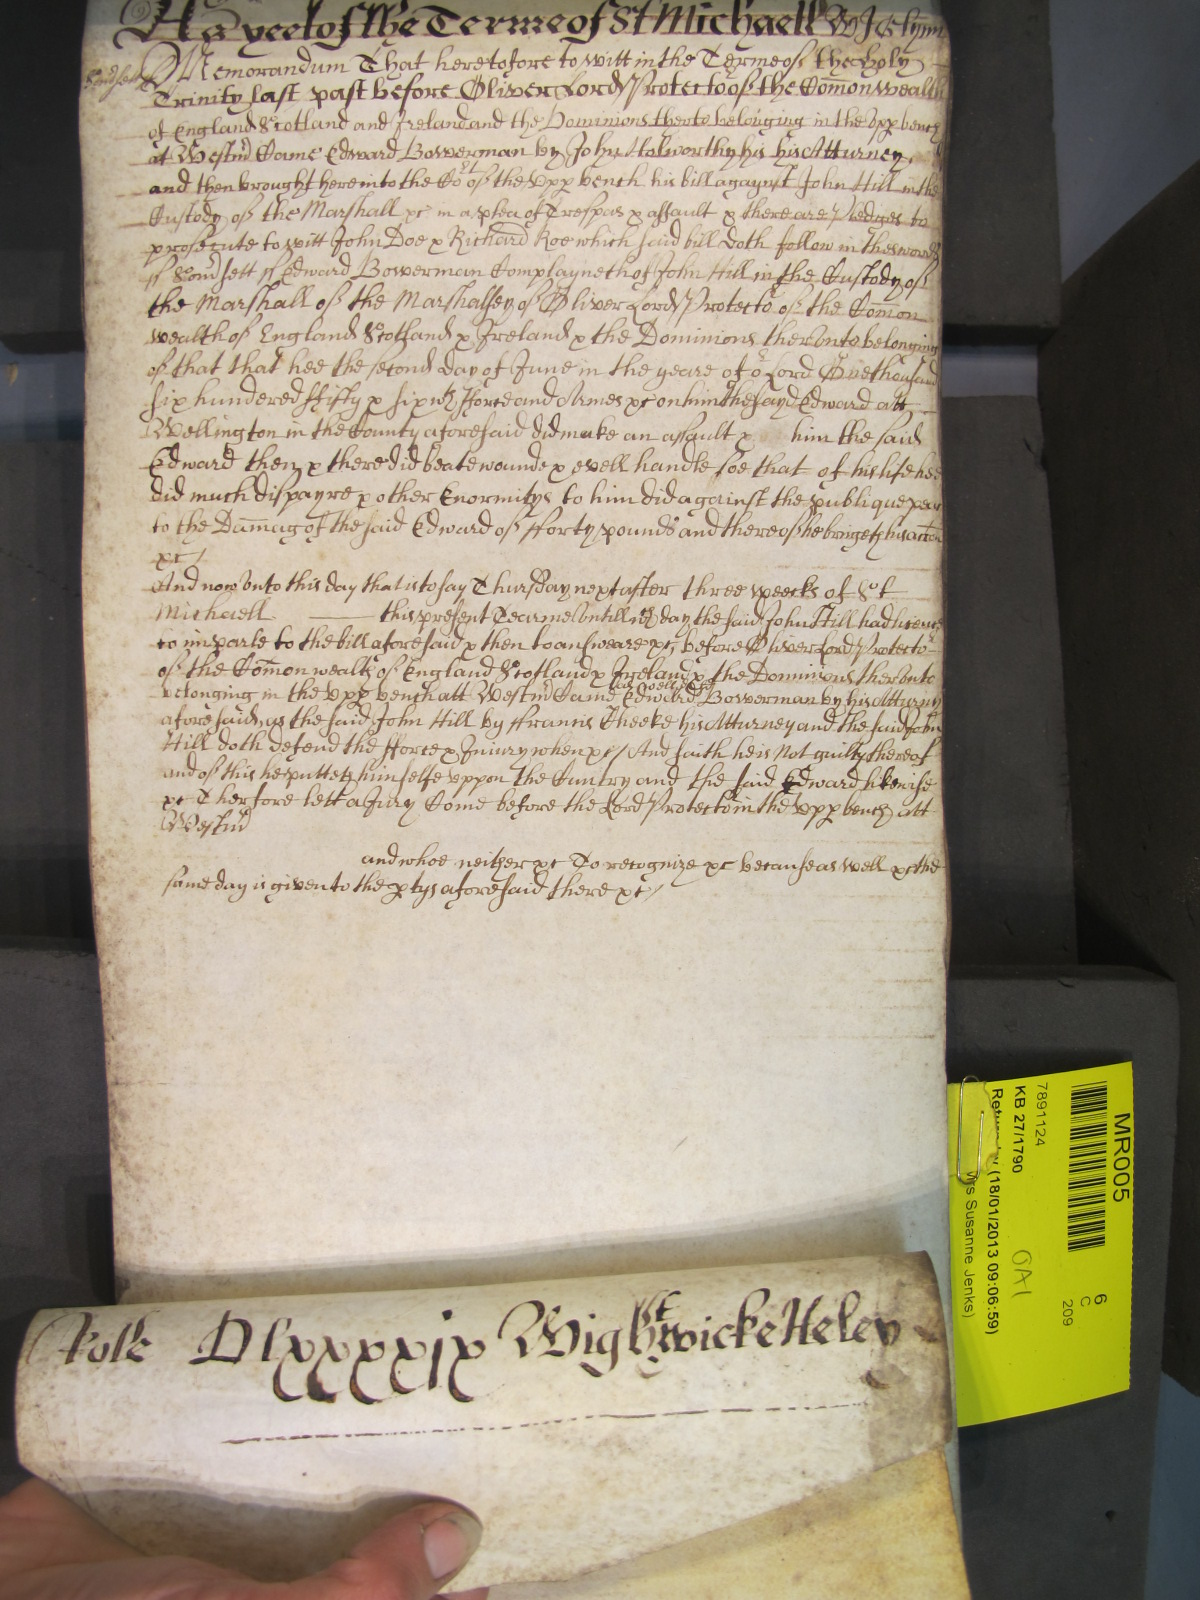 As yeet of the Terme of St Michaell
Memorandum That heretofore to witt in the Terme of the holy
Trinity last past before Oliver Lord Protector of the Comonwealth
of England Scotland and Ireland and the Dominions therto belonging in the Upp bench
at Westm̃ Came Edward Bowerman by John Holworthy his his Atturney
and then brought here into the Cort of the vpp bench his bill agaynst John Hill in the
Custody of the Marshall &c in a plea of Trespas & assault & there are Pledges to
prosecute to witt John Doe & Richard Roe which said bill doth follow in these words
ss Somsett ss Edward Bowerman Complayneth of John Hill in the Custody of
the Marshall of the Marshalsey of Oliver Lord Protector of the Comon
wealth of England Scotland & Ireland & the Dominions therunto belonging
of that that hee the second day of June in the yeare of or Lord One thousand
six hundered ffifty & six wth fforce and Armes &c on him the sayd Edward att
Wellington in the County aforesaid did make an assault & him the said
Edward then & there did beate wounde & evell handle soe that of his life hee
did much dispayre & other Enormitys to him did against the publique peace
to the Damag of the said Edward of fforty pounds and thereof he bringeth his accon
&c/
And now vnto this day that is to say Thursday next after three weecks of St
Michaell this present Tearme vntill wch day the said John Hill had licence
to imparle to the bill aforesaid & then to answeare &c before Oliver Lord Protector
of the Comonwealth of England Scotland & Ireland & the Dominions therunto
belonging in the vpp bench att Westm̃ Came as well the sd Edward Bowerman by his Atturny
aforesaid as the said John Hill by ffrancis Cheeke his Atturney and the said John
Hill doth defend the fforce & Iniury when &c/ And saith he is not guilty thereof
and of this he putteth himselfe vppon the Cuntry and the said Edward likewise
&c Therfore lett a Jury Come before the Lord Protector in the vpp bench att
Westm̃
and whoe neither &c To recognize &c because as well &c the
same day is given to the ptys aforesaid there &c/
Rolle Dlxxxxix Wightwicke Heley
MR005
7891124
KB 27/1790
(18/01/2013 09:06:59)
Mrs Susanne Jenks)
6
C
209